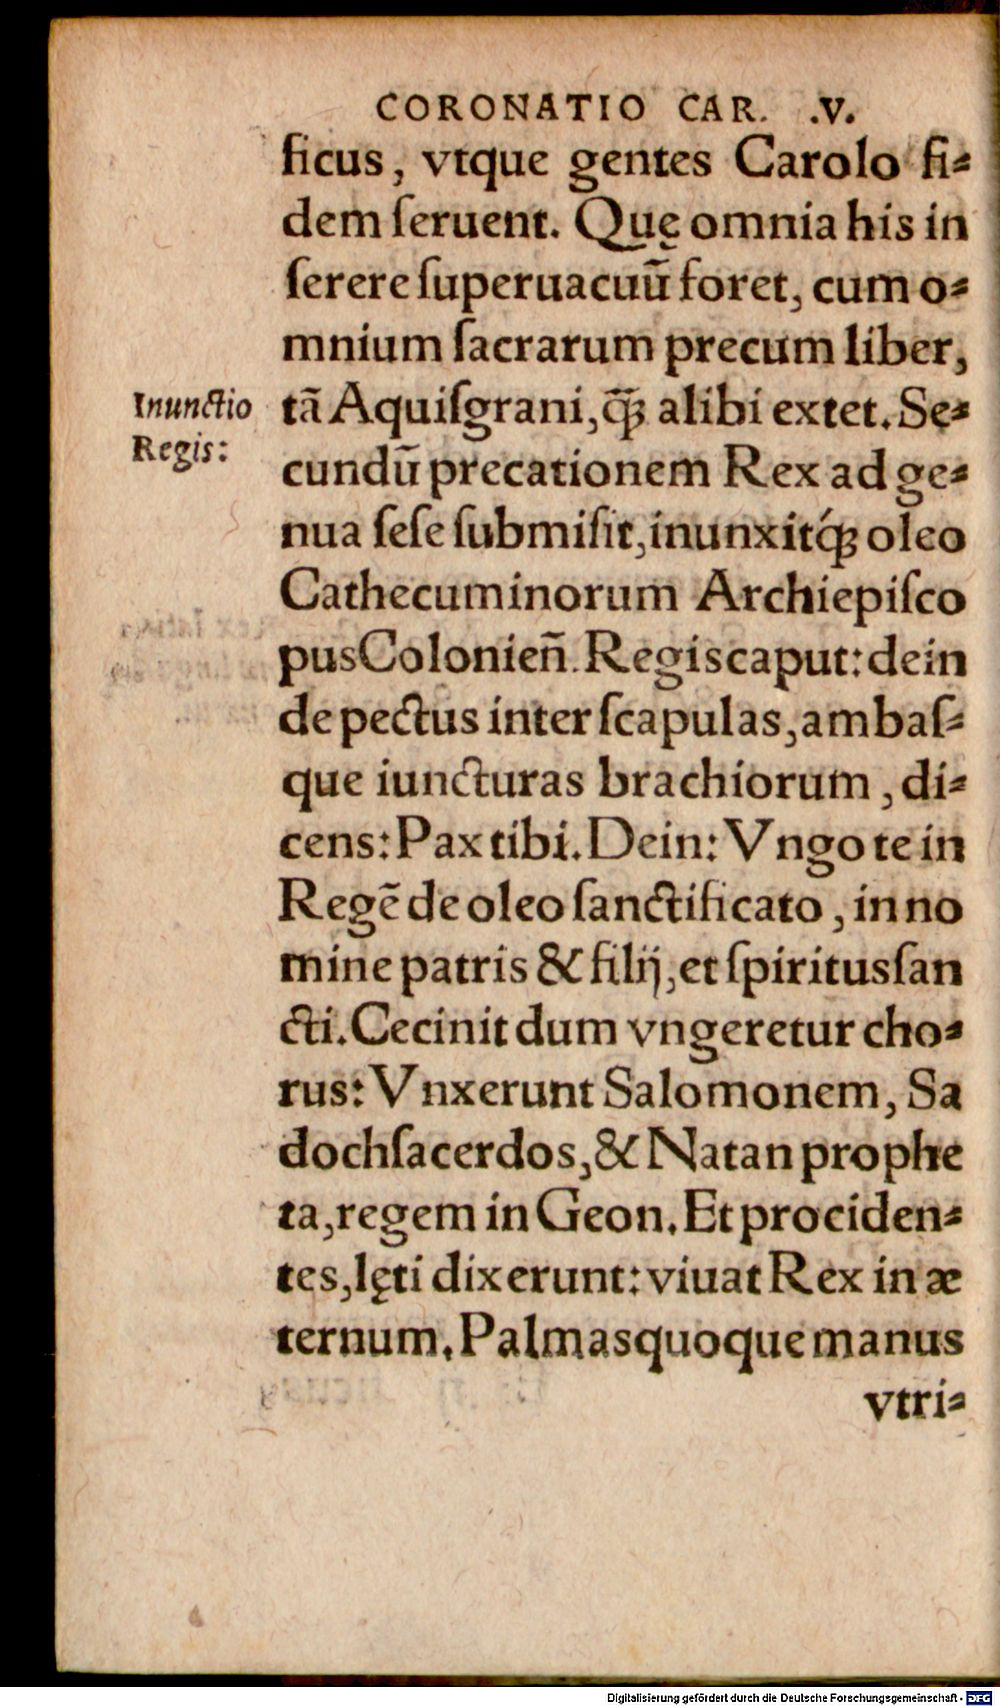 CORONATIO CAR. .V.
ficus, vtque gentes Carolo fi⸗
dem ſeruent. Quę omnia his in
ſerere ſuperuacuũ foret, cum o⸗
mnium ſacrarum precum liber,
Inunctio
Regis:
tã Aquiſgrani, q̃ꝫ alibi extet. Se⸗
cundũ precationem Rex ad ge⸗
nua ſeſe ſubmiſit, inunxitq́ꝫ oleo
Cathecuminorum Archiepiſco
pus Colonieñ. Regis caput: dein
de pectus inter ſcapulas, ambaſ⸗
que iuncturas brachiorum, di⸗
cens: Pax tibi. Dein: Vngo te in
Regẽ de oleo ſanctificato, in no
mine patris & filij, et ſpiritus ſan
cti. Cecinit dum vngeretur cho⸗
rus: Vnxerunt Salomonem, Sa
doch ſacerdos, & Natan prophe
ta, regem in Geon. Et prociden⸗
tes, lęti dixerunt: viuat Rex in æ
ternum. Palmas quoque manus
vtri⸗
Digitalisierung gefördert durch die Deutsche Forschungsgemeinschaft - DFG